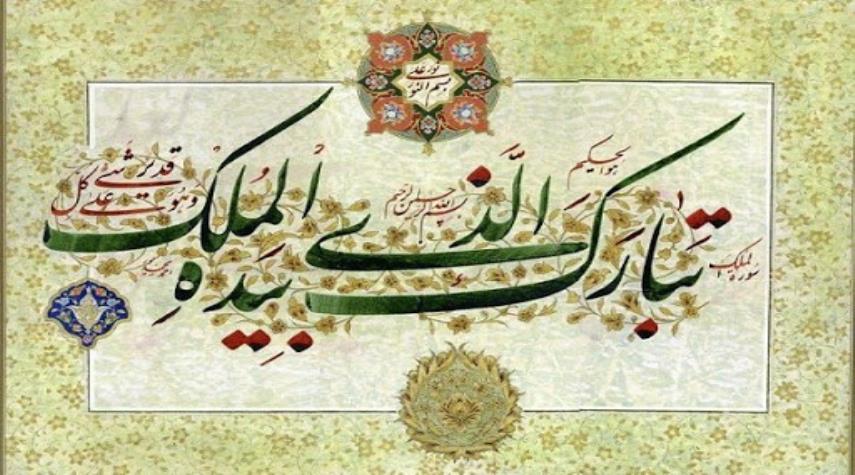 نور علی
بسم النور
هو الحکیم
بسم الله الرحمن الرحیم
تبارک الَّذی بیَدهِ المُلک
وهُوَ علی کل شیء قدیر
سورة الملک ۱